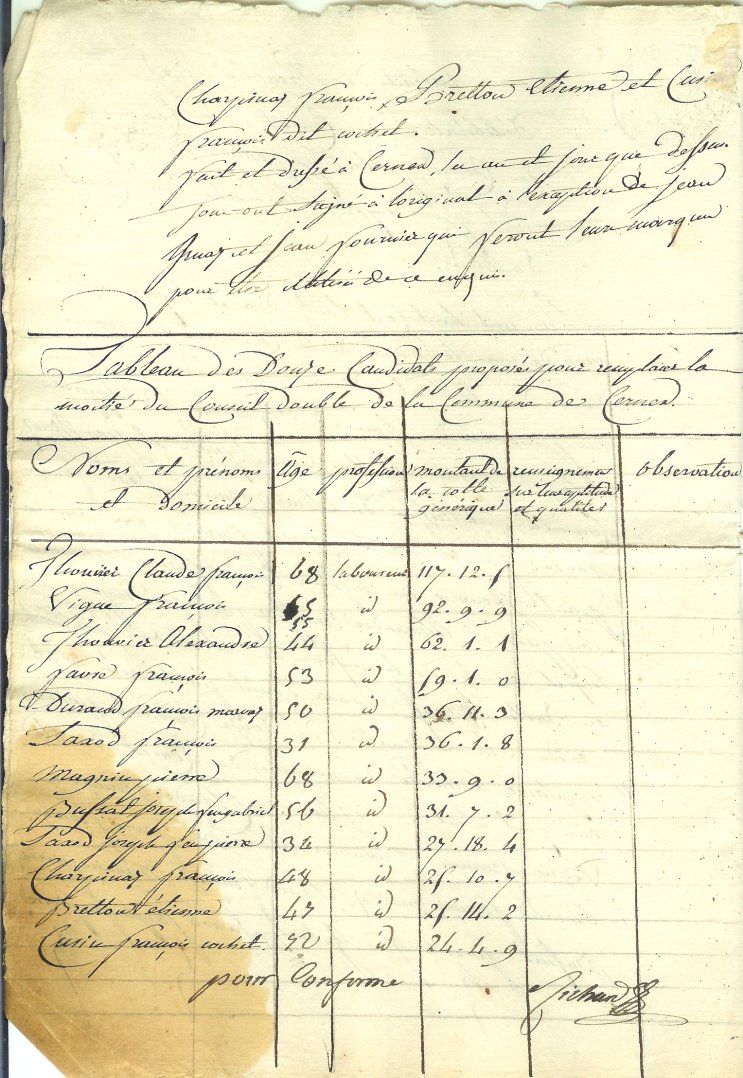 Charpinaz françois, Bretton etienne et Cusin
françois dit cochet.
fait et dressé à Cernex, lu an et jour que dessus.
tous ont signé à l'original à l'exception de jean
et jean fournier qui feront leur marque
pour être de ce enquis.
Tableau des Douze Candidats proposés pour remplacer la
moitié du Conseil double de la Commune de Cernex.
Noms et prénoms et domicile | âge | profession | montant de la cotte générique | renseignemens sur leur aptitude et qualités | observation
Thouvier Claude françois 68 laboureur 117 . 12 . 5
Vigne françois 55 id 92 . 9 . 9
55
Thouvier Alexandre 44 id 62 . 1 . 1
favre françois 53 id 59 . 1 . 0
Durand françois marvaz 50 id 36 . 11 . 3
Taxod françois 31 id 36 . 1 . 8
magnin pierre 68 id 33 . 9 . 0
Bussat joseph feu gabriel 56 id 31 . 7 . 2
Taxod joseph feu pierre 34 id 27 . 18 . 4
Charpinaz françois 48 id 25 . 10 . 7
Bretton étienne 47 id 25 . 14 . 2
Cusin françois cochet. 52 id 24 . 4 . 9
pour Conforme